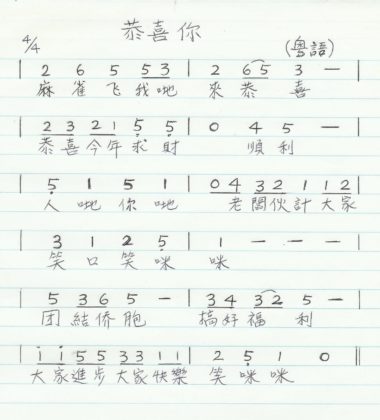 恭喜你
4/4 (粵語)
| 2 6 5 5 3 | 2 6 5 3 — |
麻雀飞我哋 來恭喜
| 2 3 2 1 5 5 | 0 4 5 — |
恭喜今年求財 順利
| 5 1 5 1 | 0 4 3 2 1 1 2 |
人哋你哋 老闆伙計大家
| 3 1 2 5 | 1 — — — |
笑口笑咪 咪
| 5 3 6 5 — | 3 4 3 2 5 — |
团結侨胞 搞好福利
| i i 5 5 3 3 1 1 | 2 5 1 0 ||
大家進步大家快樂 笑咪咪